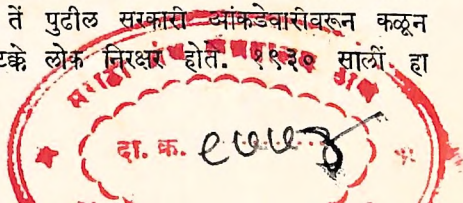 तें पुढील सरकारी आंकडेवारीवरून कळून
टक्के लोक निरक्षर होते. १९३० सालीं हा
मराठी
दा. क्र.